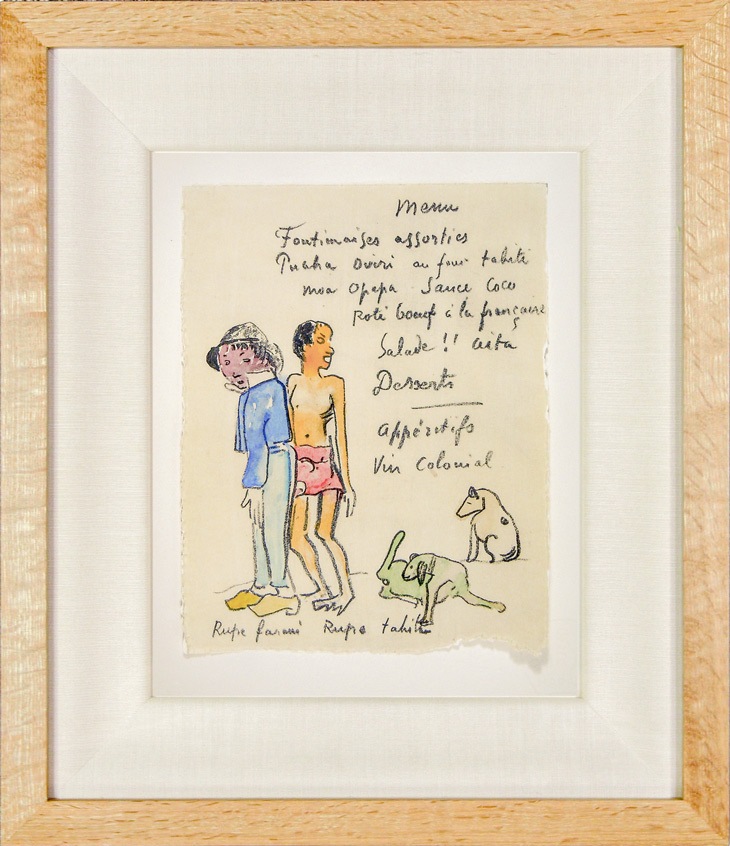 Menu
Foutimaises assorties
Puaha Oviri au four tahiti
moa Opapa Sauce Coco
Roti boeuf à la française
Salade !! aita
Desserts
appéritifs
Vin Colonial
Rupe farani Rupe tahiti